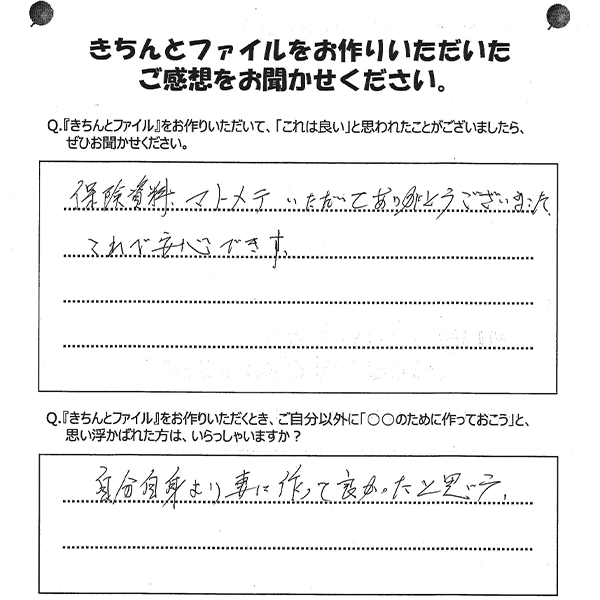 きちんとファイルをお作りいただいた
ご感想をお聞かせください。
Q.『きちんとファイル』をお作りいただいて、「これは良い」と思われたことがございましたら、
ぜひお聞かせください。
保険資料、マトメテいただいてありがとうございました
これで安心できます。
Q.『きちんとファイル』をお作りいただくとき、ご自分以外に「○○のために作っておこう」と、
思い浮かばれた方は、いらっしゃいますか？
自分自身より妻に作って良かったと思いマス。